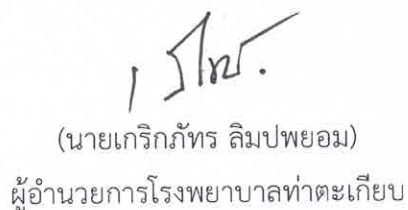 (นายเกริกภัทร ลิมปพยอม)
ผู้อำนวยการโรงพยาบาลท่าตะเกียบ